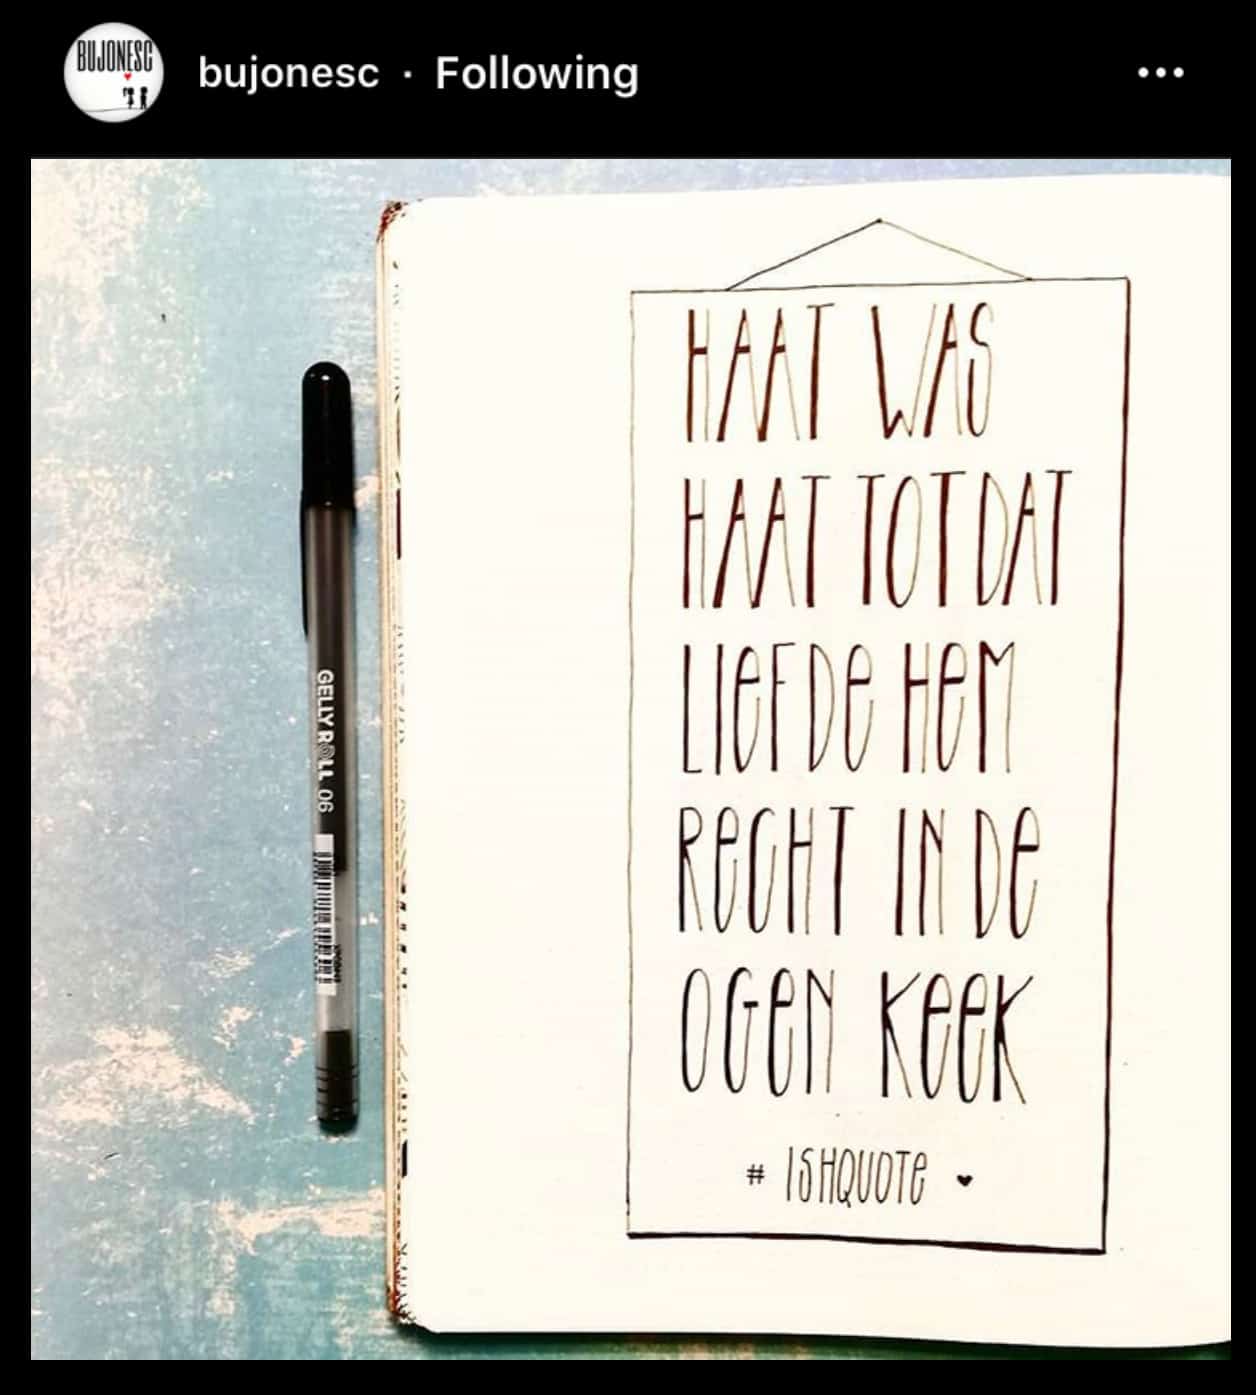 BUJONESC
bujonesc · Following
HAAT WAS
HAAT TOTDAT
LIEFDE HEM
RECHT IN DE
OGEN KEEK
# ISHQUOTE
GELLY ROLL 06